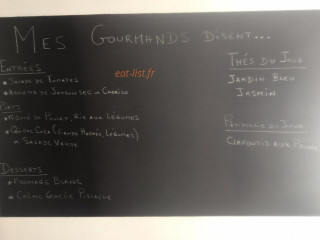 MES GOURMANDS DISENT...
eat-list.fr
ENTRÉES
• SALADE DE TOMATES
• ASSIETTE DE JAMBON SEC
PLATS
• DE POULET, RIZ AUX LÉGUMES
(VIANDE HACHÉE, LÉGUMES)
SALADE VERTE
DESSERTS
• FROMAGE BLANC
• CRÈME GLACÉE PISTACHE
THÉS DU JOUR
JARDIN BLEU
JASMIN
DU JOUR
CLAFOUTIS AUX